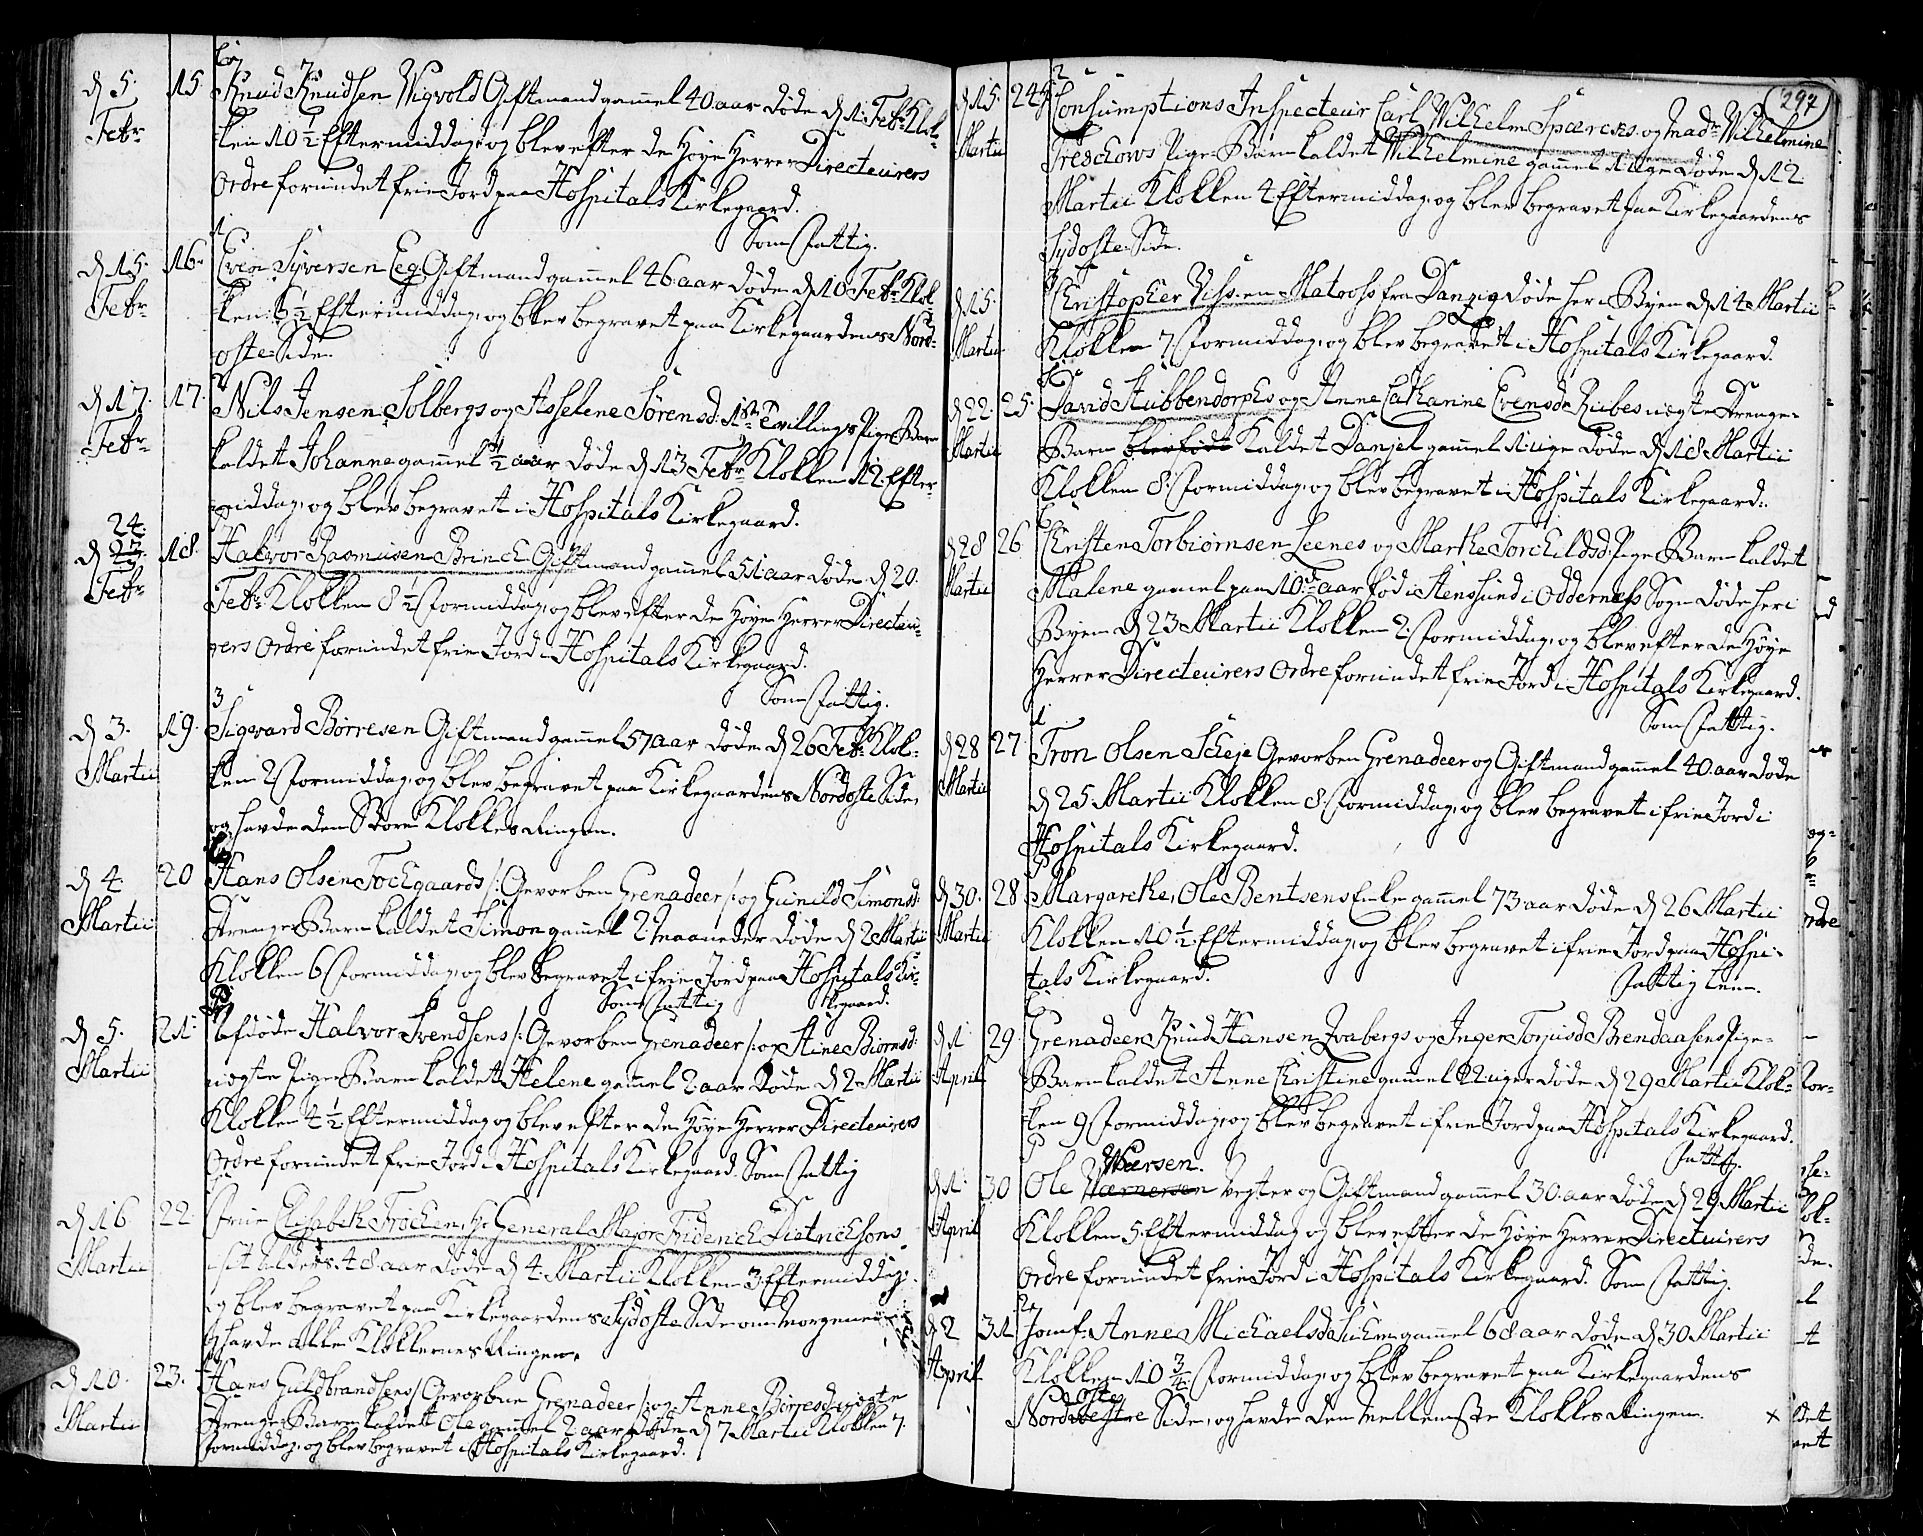 d 5. 15. Knud Knudsen Wigvold Giftmand gamel 40 aar døde d 1 Febr Klok-
Febr ken 10 1/2 Eftermiddag, og blev efter de Høye Herrer Directeurers
Ordre forundet frie Jord paa Hospitals Kirkegaard.
Som fattig.
d 15. 16. Even Syversen Eeg Giftmand gamel 46 aar døde d 10 Febr Klok
Febr ken 5 1/2 Eftermiddag, og blev begravet paa Kirkegaardens Nord-
oste Side.
d 17. 17. Nils Jensen Solbergs og Asselene Sørensd. 1ste Tvillings Pige Barn
Febr kaldet Johanne gamel 1/2 aar døde d 13 Febr Klokken 12 Efter-
middag, og blev begravet i Hospitals Kirkegaard.
24.
d 23. 18. Halvor Rasmusen Brinch Giftmand gamel 51 aar døde d 20.
Febr Febr Klokken 8 1/2 formiddag, og blev efter de Høye Herrer Directeu-
rers Ordre forundet frie Jord i Hospitals Kirkegaard.
3 Som fattig.
d 3. 19. Sigvard Børresen Giftmand gamel 57 aar døde d 26 Febr Klok-
Martii ken 2 formiddag, og blev begravet paa Kirkegaardens Nordoste Side,
og havde den Store Klokkes Ringen.
d 4. 20 Hans Olsen Tochgaards /: Gevorben Grenadeer /: og Gunild Simonsd.
Martii Drenge Barn kaldet Simon gamel 2 Maaneder døde d 2 Martii
Klokken 6 formiddag, og blev begravet i frie Jord paa Hospitals Kir-
Som fattig kegaard.
d 5. 21. Afdøde Halvor Svendsens /: Gevorben Grenadeer /: og Stine Biørnsd.
Martii uægte Pige Barn kaldet Helene gamel 2 aar døde d 2 Martii
Klokken 4 1/2 Eftermiddag og blev efter de Høye Herrer Directeurers
Ordre forundet frie Jord i Hospitals Kirkegaard. Som fattig
d 16 22. Frue Elisabeth Trøchen, Hr General Major Friderich Dietrichsons
Martii i sit alders 48 aar døde d 4 Martii Klokken 3 Eftermiddag,
og blev begravet paa Kirkegaardens Sydoste Side om Morgenen
og havde alle Klokkernes Ringen.
d 10. 23. Hans Guldbrandsens /: Gevorbne Grenadeer /: og Anne Børresd. uægte
Martii Drenge Barn kaldet Ole gamel 2 aar døde d 7 Martii Klokken 7.
formiddag, og blev begravet i Hospitals Kirkegaard.
297
d 15. 24 Consumptions Inspecteur Carl Wilhelm Spærcks og Mad. Wilhelmine
Martii Treschows Pige Barn kaldet Wilhelmine gamel 1 Uge døde d 12
Martii Klokken 4 Eftermiddag, og blev begravet paa Kirkegaardens
Sydoste Side.
d 15. Christopher en Matroos fra Danzig døde her i Byen d 14 Martii
Martii Klokken 7 formiddag, og blev begravet i Hospitals Kirkegaard.
d 22. 25. David Stubbendorphs og Anne Catharine Evensd. Rubes uægte Drenge-
Martii Barn blev født kaldet Danjel gamel 1 Uge døde d 18 Martii
Klokken 8 formiddag, og blev begravet i Hospitals Kirkegaard.
d 28 26 Christen Torbiørnsen Leenes og Marthe Torchildsd. Pige Barn kaldet
Martii Malene gamel paa 10de aar fød i Stensund i Oddernæss Sogn døde her i
Byen d 23 Martii Klokken 2 formiddag, og blev efter de Høye
Herrer Directeurers Ordre forundet frie Jord i Hospitals Kirkegaard.
Som fattig.
d 28 27. Tron Olsen Scheje Gevorben Grenadeer og Giftmand gamel 40 aar døde
Martii d 25 Martii Klokken 8 formiddag, og blev begravet i frie Jord i
Hospitals Kirkegaard.
d 30. 28. Margarethe, Ole Bentsens Enke gamel 73 aar døde d 26 Martii
Martii Klokken 10 1/2 Eftermiddag, og blev begravet i frie Jord paa Hospi-
tals Kirkegaard. fattig Lem.
d 1 29. Grenadeer Knud Hansen Foabergs og Inger Torjusd. Brendaasens Pige-
April Barn kaldet Anne Christine gamel 12 uger døde d 29 Martii Klok-
ken 9 formiddag, og blev begravet i frie Jord paa Hospitals Kirkegaard.
Wærsen. fattig.
d 1. 30 Ole Værnersen Vegter og Giftmand gamel 30 aar døde d 29 Martii
April Klokken 5 Eftermiddag og blev efter de Høye Herrer Directeurers
Ordre forundet frie Jord i Hospitals Kirkegaard. Som fattig.
d 2 31 Jomf. Anne Michaelsdatter gamel 68 aar døde d 30 Martii
April Klokken 10 3/4 formiddag, og blev begravet paa Kirkegaardens
oste
Nordvestre Side, og havde den Mellemste Klokkes Ringen. x